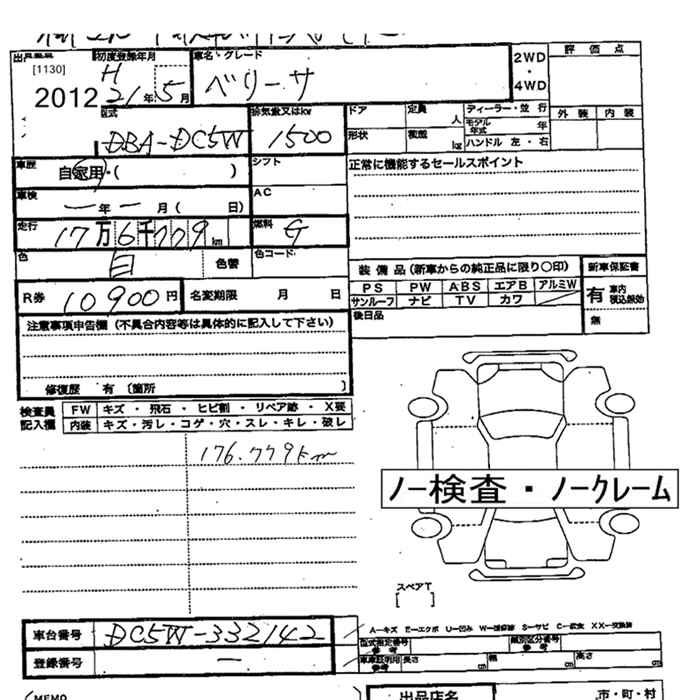 出品番号 初度登録年月 車名・グレード 2WD・4WD 評価点
[1130] H ベリーサ
2012 21年 5月 外装 内装
型式 排気量又はkw ドア 定員 人 ディーラー・並行
DBA-DC5W 1500 形状 積載 kg モデル年式 年
ハンドル 左・右
車歴 自家用・( ) シフト 正常に機能するセールスポイント
車検 ー年ー月( 日) AC
走行 17万6千779km 燃料 G
色 白 色替 色コード 装備品(新車からの純正品に限り○印) 新車保証書
R券 10900円 名変期限 月 日 PS PW ABS エアB アルミW 有 車内 積込観効
サンルーフ ナビ TV カワ
注意事項申告欄(不具合内容等は具体的に記入して下さい) 後日品 無
修復歴 有〔箇所 〕
検査員 FW キズ・飛石・ヒビ割・リペア跡・X要
記入欄 内装 キズ・汚レ・コゲ・穴・スレ・キレ・破レ
176.779km
ノー検査・ノークレーム
スペアT
[ ]
A―キズ E―エクボ U―凹み W― S―サビ C―腐食 XX―交換跡
車台番号 DC5W-332142 型式指定番号 参考 類別区分番号 参考
登録番号 ー 車庫証明用 参考 長さ cm 幅 cm 高さ cm
(MEMO 出品店名 市・町・村